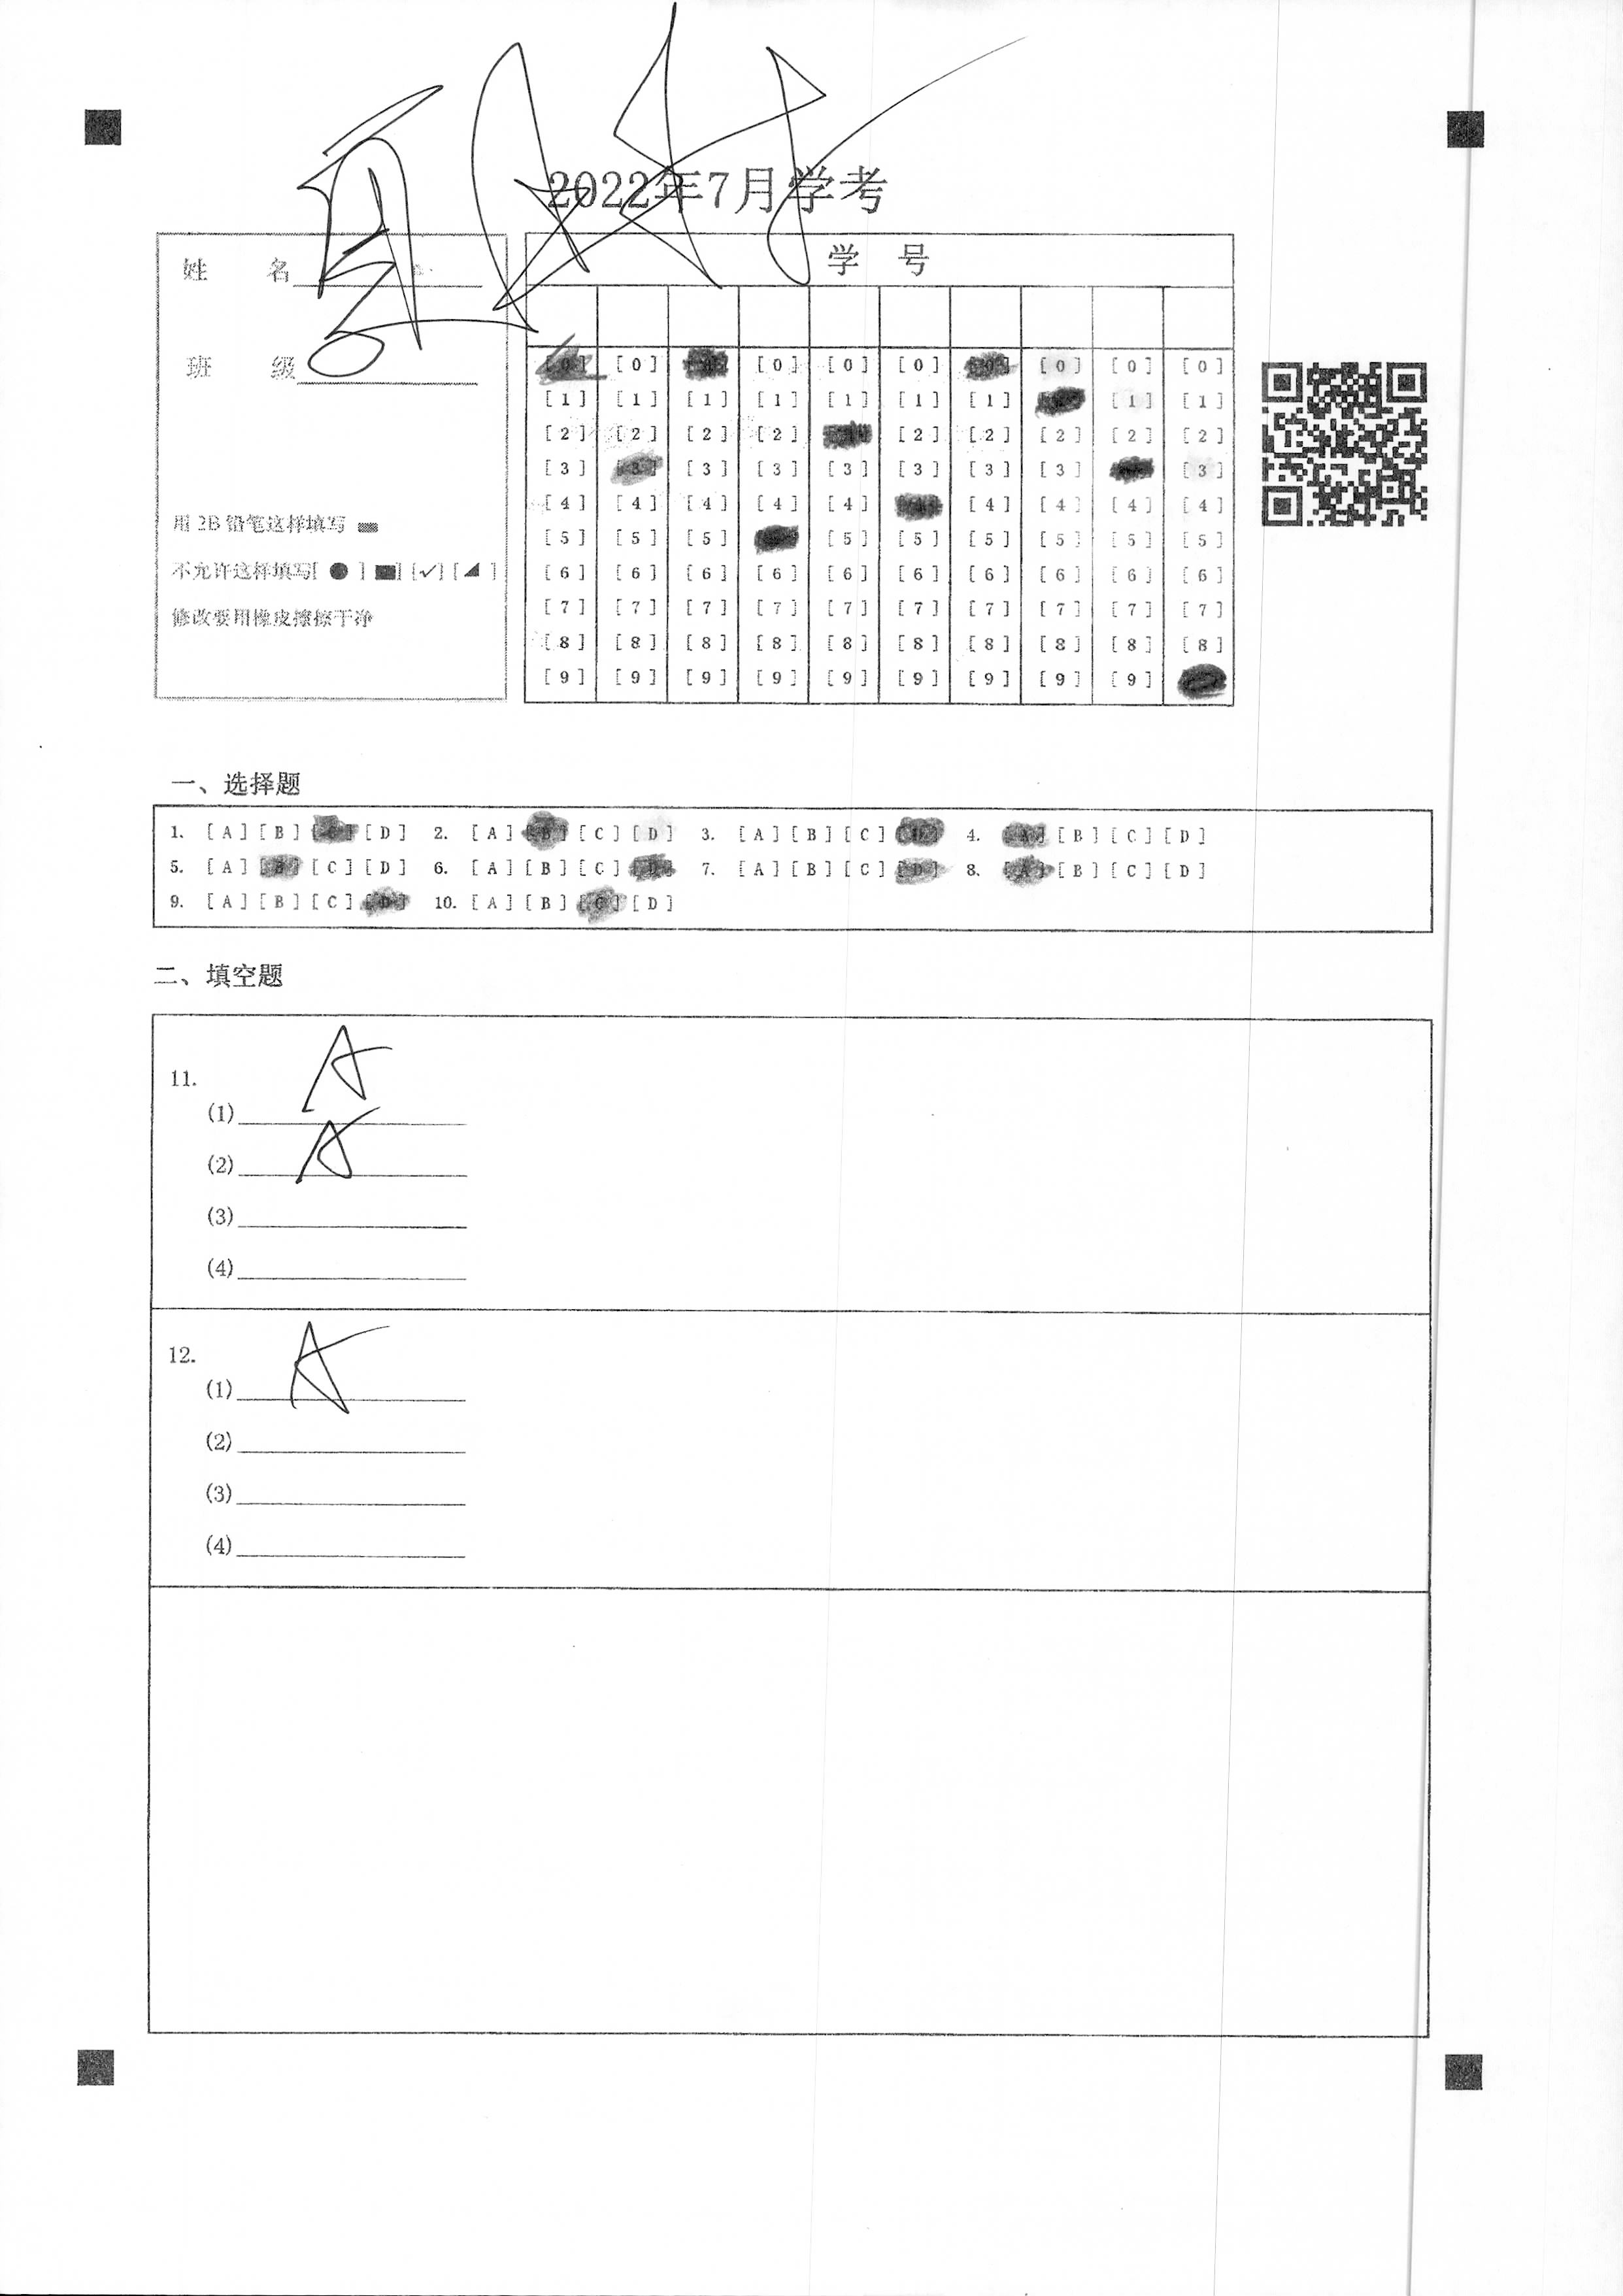 2022年7月学考
姓 名
班 级
用2B铅笔这样填写
不允许这样填写[ ● ] [■] [✓] [◢ ]
修改要用橡皮擦擦干净
学 号
[0] [0] [0] [0] [0] [0] [0] [0] [0]
[1] [1] [1] [1] [1] [1] [1] [1] [1]
[2] [2] [2] [2] [2] [2] [2] [2] [2]
[3] [3] [3] [3] [3] [3] [3] [3] [3]
[4] [4] [4] [4] [4] [4] [4] [4] [4]
[5] [5] [5] [5] [5] [5] [5] [5] [5]
[6] [6] [6] [6] [6] [6] [6] [6] [6] [6]
[7] [7] [7] [7] [7] [7] [7] [7] [7] [7]
[8] [8] [8] [8] [8] [8] [8] [8] [8] [8]
[9] [9] [9] [9] [9] [9] [9] [9] [9]
一、选择题
1. [A] [B] [C] [D] 2. [A] [B] [C] [D] 3. [A] [B] [C] [D] 4. [A] [B] [C] [D]
5. [A] [B] [C] [D] 6. [A] [B] [C] [D] 7. [A] [B] [C] [D] 8. [A] [B] [C] [D]
9. [A] [B] [C] [D] 10. [A] [B] [C] [D]
二、填空题
11.
(1) A
(2) A
(3)
(4)
12.
(1) A
(2)
(3)
(4)